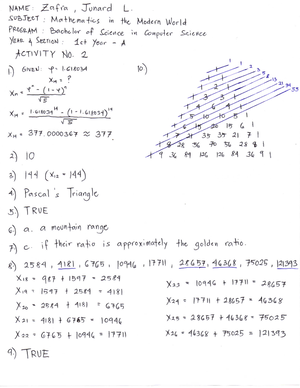 NAME: Zafra, Junard L.
SUBJECT: Mathematics in the Modern World
PROGRAM: Bachelor of Science in Computer Science
YEAR & SECTION: 1st Year - A
ACTIVITY NO. 2
1) GIVEN: φ = 1.618034
X₁₄ = ?
Xₙ = φⁿ - (1-φ)ⁿ / √5
X₁₄ = 1.618034¹⁴ - (1-1.618034)¹⁴ / √5
X₁₄ = 377.0000367 ≈ 377
2) 10
3) 144 (X₁₂ = 144)
4) Pascal's Triangle
5) TRUE
6) a. a mountain range
7) c. if their ratio is approximately the golden ratio.
8) 2584, 4181, 6765, 10946, 17711, 28657, 46368, 75025, 121393
X₁₈ = 987 + 1597 = 2584
X₁₉ = 1597 + 2584 = 4181
X₂₀ = 2584 + 4181 = 6765
X₂₁ = 4181 + 6765 = 10946
X₂₂ = 6765 + 10946 = 17711
X₂₃ = 10946 + 17711 = 28657
X₂₄ = 17711 + 28657 = 46368
X₂₅ = 28657 + 46368 = 75025
X₂₆ = 46368 + 75025 = 121393
9) TRUE
10)
1 1 2 3 5 8 13 21 34 55
1
1 1
1 2 1
1 3 3 1
1 4 6 4 1
1 5 10 10 5 1
1 6 15 20 15 6 1
1 7 21 35 35 21 7 1
1 8 28 56 70 56 28 8 1
1 9 36 84 126 126 84 36 9 1